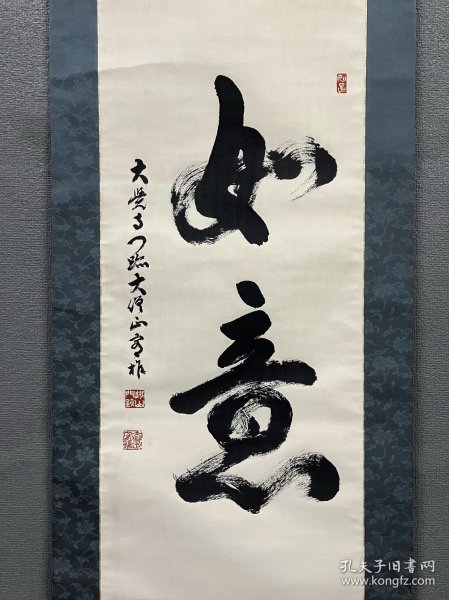 如意
大覚寺門跡大僧正
孔夫子旧书网
www.kongfz.com